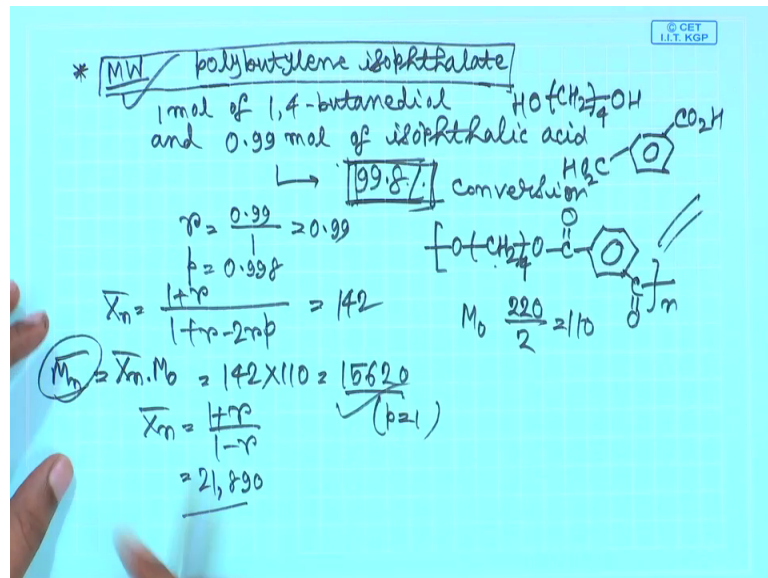 © CET
I.I.T. KGP
* MW polybutylene isophthalate
1 mol of 1,4-butanediol HO-(CH2)4-OH
and 0.99 mol of isophthalic acid
CO2H
HO2C
99.8% conversion
r = 0.99/1 = 0.99
p = 0.998
X̄n = 1+r / 1+r-2rp = 142
[O-(CH2)4-O-C(=O)- C(=O)]n
M0 220/2 = 110
M̄n = X̄n.M0 = 142X110 = 15620
(p=1)
X̄n = 1+r / 1-r
= 21,890